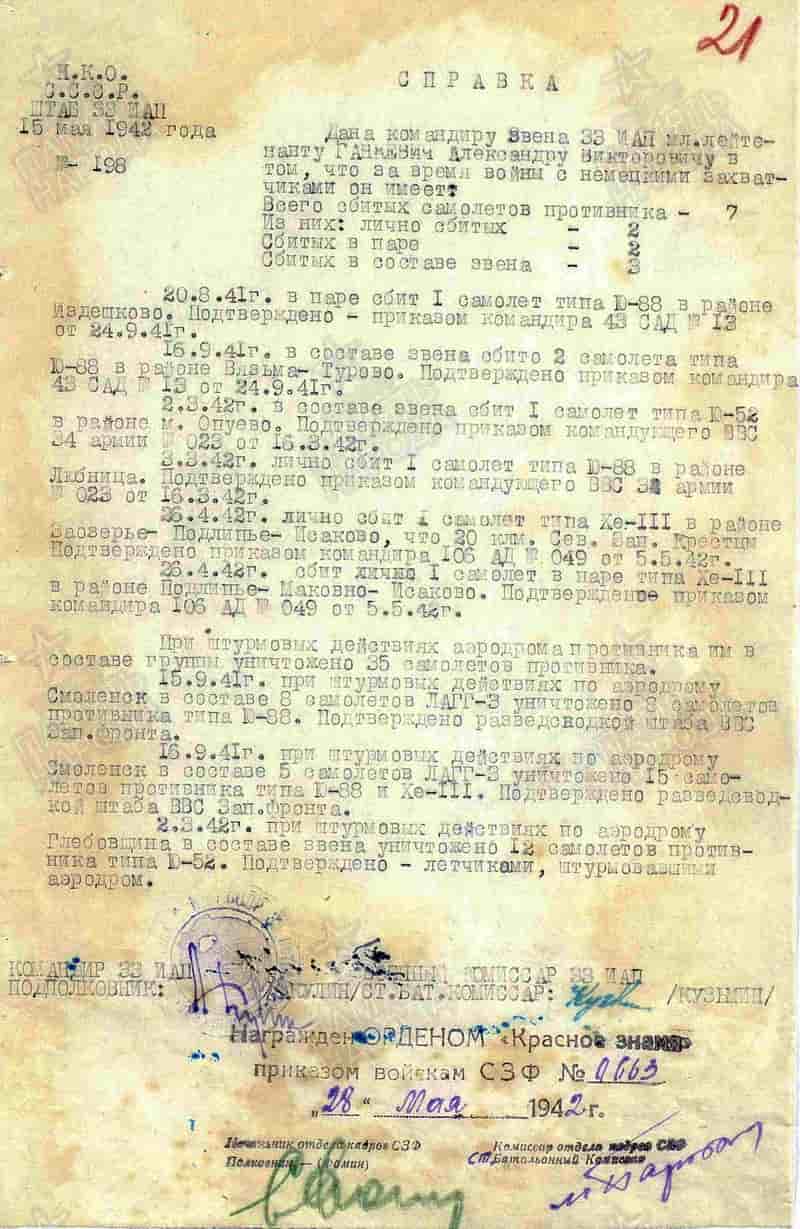 21
Н.К.О.
С.С.С.Р.
ШТАБ 33 ИАП
15 мая 1942 года
№- 198
СПРАВКА
Дана командиру звена 33 ИАП мл.лейте-
нанту ГАНКЕВИЧ Александру Викторовичу в
том, что за время войны с немецкими захват-
чиками он имеет:
Всего сбитых самолетов противника - 7
Из них: лично сбитых - 2
Сбитых в паре - 2
Сбитых в составе звена - 3
20.8.41г. в паре сбит I самолет типа Ю-88 в районе
Издешково. Подтверждено - приказом командира 43 САД № 13
от 24.9.41г.
16.9.41г. в составе звена сбито 2 самолета типа
Ю-88 в районе Вязьма- Турово. Подтверждено приказом командира
43 САД № 13 от 24.9.41г.
2.3.42г. в составе звена сбит I самолет типа Ю-52
в районе м. Опуево. Подтверждено приказом командующего ВВС
34 армии № 023 от 16.3.42г.
3.3.42г. лично сбит I самолет типа Ю-88 в районе
Любница. Подтверждено приказом командующего ВВС 34 армии
№ 023 от 16.3.42г.
26.4.42г. лично сбит I самолет типа Хе-III в районе
Заозерье- Подлипье- Исаково, что 20 клм. Сев. Зап. Крестцы
Подтверждено приказом командира 106 АД № 049 от 5.5.42г.
26.4.42г. сбит лично I самолет в паре типа Хе-III
в районе Подлипье- Маковно- Исаково. Подтверждение приказом
командира 106 АД № 049 от 5.5.42г.
При штурмовых действиях аэродрома противника им в
составе группы уничтожено 35 самолетов противника.
15.9.41г. при штурмовых действиях по аэродрому
Смоленск в составе 8 самолетов ЛАГГ-3 уничтожено 8 самолетов
противника типа Ю-88. Подтверждено разведсводкой штаба ВВС
Зап.Фронта.
16.9.41г. при штурмовых действиях по аэродрому
Смоленск в составе 5 самолетов ЛАГГ-3 уничтожено 15 само-
летов противника типа Ю-88 и Хе-III. Подтверждено разведсвод-
кой штаба ВВС Зап.Фронта.
2.3.42г. при штурмовых действиях по аэродрому
Глебовщина в составе звена уничтожено 12 самолетов против-
ника типа Ю-52. Подтверждено - летчиками, штурмовавшими
аэродром.
КОМАНДИР 33 ИАП КОМИССАР 33 ИАП
ПОДПОЛКОВНИК: /СТ.БАТ.КОМИССАР: /КУЗЬМИН/
Награжден ОРДЕНОМ «Красное знамя
приказом войскам СЗФ № 0663
„28" Мая 1942 г.
Начальник отдела кадров СЗФ Комиссар отдела кадров СЗФ
Полковник — (Фомин) ст. Батальонный Комиссар